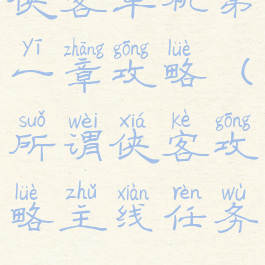 侠客单机第
yī zhāng gōng lüè
一章攻略（
suǒ wèi xiá kè gōng
所谓侠客攻
lüè zhǔ xiàn rèn wù
略主线任务